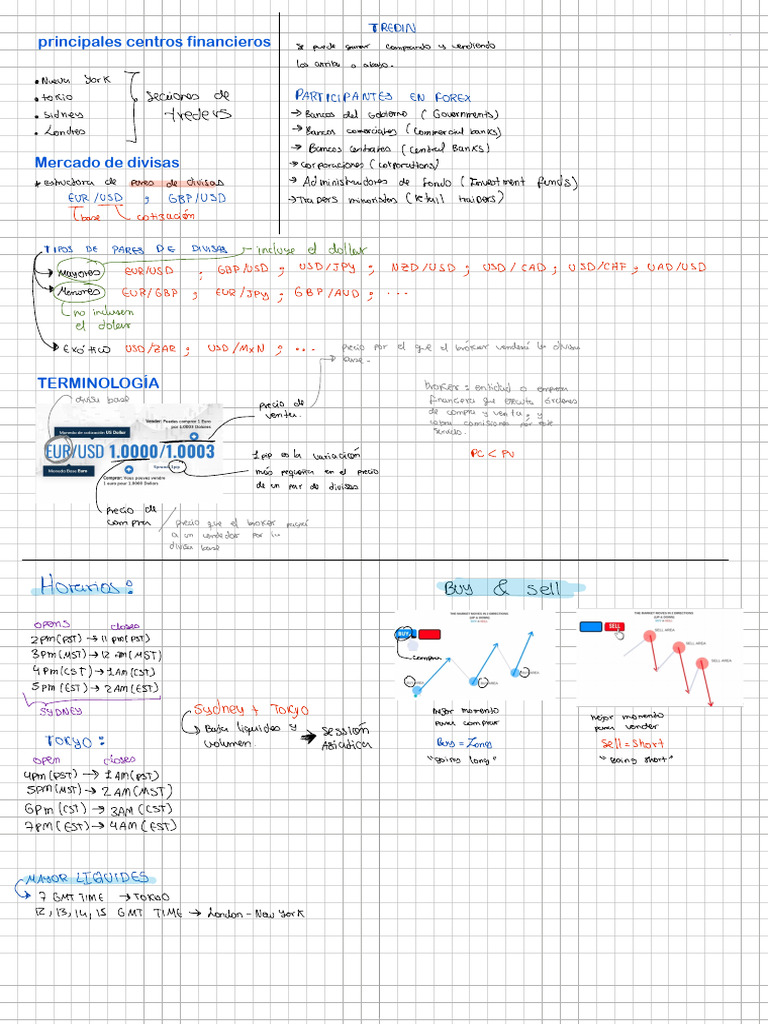 principales centros financieros
• Nueva York
• tokio
• Sidney
• Londres
Secciones de
traders
Mercado de divisas
* estructora de pares de divisas
EUR/USD ; GBP/USD
base cotización
TREDIN
Se puede ganar comprando y vendiendo
los arriba o abajo.
PARTICIPANTES EN FOREX
→ Bancos del Gobierno (Governments)
→ Bancos comerciales (Commercial banks)
→ Bancos centrales (Central Banks)
→ Corporaciones (corporations)
→ Administradores de fondo (Investment funds)
→ Traders minoristas (retail traders)
TIPOS DE PARES DE DIVISAS
incluye el dollar
Mayores EUR/USD ; GBP/USD ; USD/JPY ; NZD/USD ; USD/CAD ; USD/CHF ; UAD/USD
Menores EUR/GBP ; EUR/JPY ; GBP/AUD ; ...
no incluyen
el dolar
Exótico USD/ZAR ; USD/MXN ; ...
precio por el que el bróker venderá la divisa
base.
TERMINOLOGÍA
divisa base
Vender: Puedes comprar 1 Euro
por 1.0003 Dolares
Moneda de cotización US Dollar
EUR/USD 1.0000/1.0003
Moneda Base Euro
Spread 3 pip
Comprar: Vous pouvez vendre
1 euro pour 1.0000 Dollars
precio de
venta
1 pip es la variación
más pequeña en el precio
de un par de divisas
precio de
compra
precio que el broker pagará
a un vendedor por la
divisa base
broker: entidad o empresa
financiera que ejecuta órdenes
de compra y venta, y
cobra comisiones por este
servicio.
PC < PV
Horarios:
opens closes
2pm (PST) → 11 pm (PST)
3pm (MST) → 12 am (MST)
4pm (CST) → 1 am (CST)
5pm (EST) → 2 am (EST)
SYDNEY
TOKYO:
open closes
4pm (PST) → 1 AM (PST)
5pm (MST) → 2 AM (MST)
6pm (CST) → 3AM (CST)
7pm (EST) → 4AM (EST)
Sydney + TOKYO
Baja liquides y
volumen.
Sessión
Asiática
MAYOR LIQUIDES
7 GMT TIME → TOKYO
12, 13, 14, 15 GMT TIME → London - New York
Buy & sell
THE MARKET MOVES IN 2 DIRECTIONS
(UP & DOWN)
BUY & SELL
BUY
compra
BUY AREA
BUY AREA
BUY AREA
mejor momento
para comprar
Buy = Long
"Going long"
THE MARKET MOVES IN 2 DIRECTIONS
(UP & DOWN)
BUY & SELL
SELL
SELL AREA
SELL AREA
SELL AREA
mejor momento
para vender
Sell = Short
"Going short"